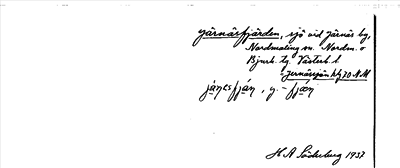 Järnäsfjärden, sjö vid Järnäs by,
Nordmaling sn. Nordm. o
Bjurh. tg. Västerb. l.
Jernässjön
jánɛsfján, y. - fjæn
H A Söderberg 1937